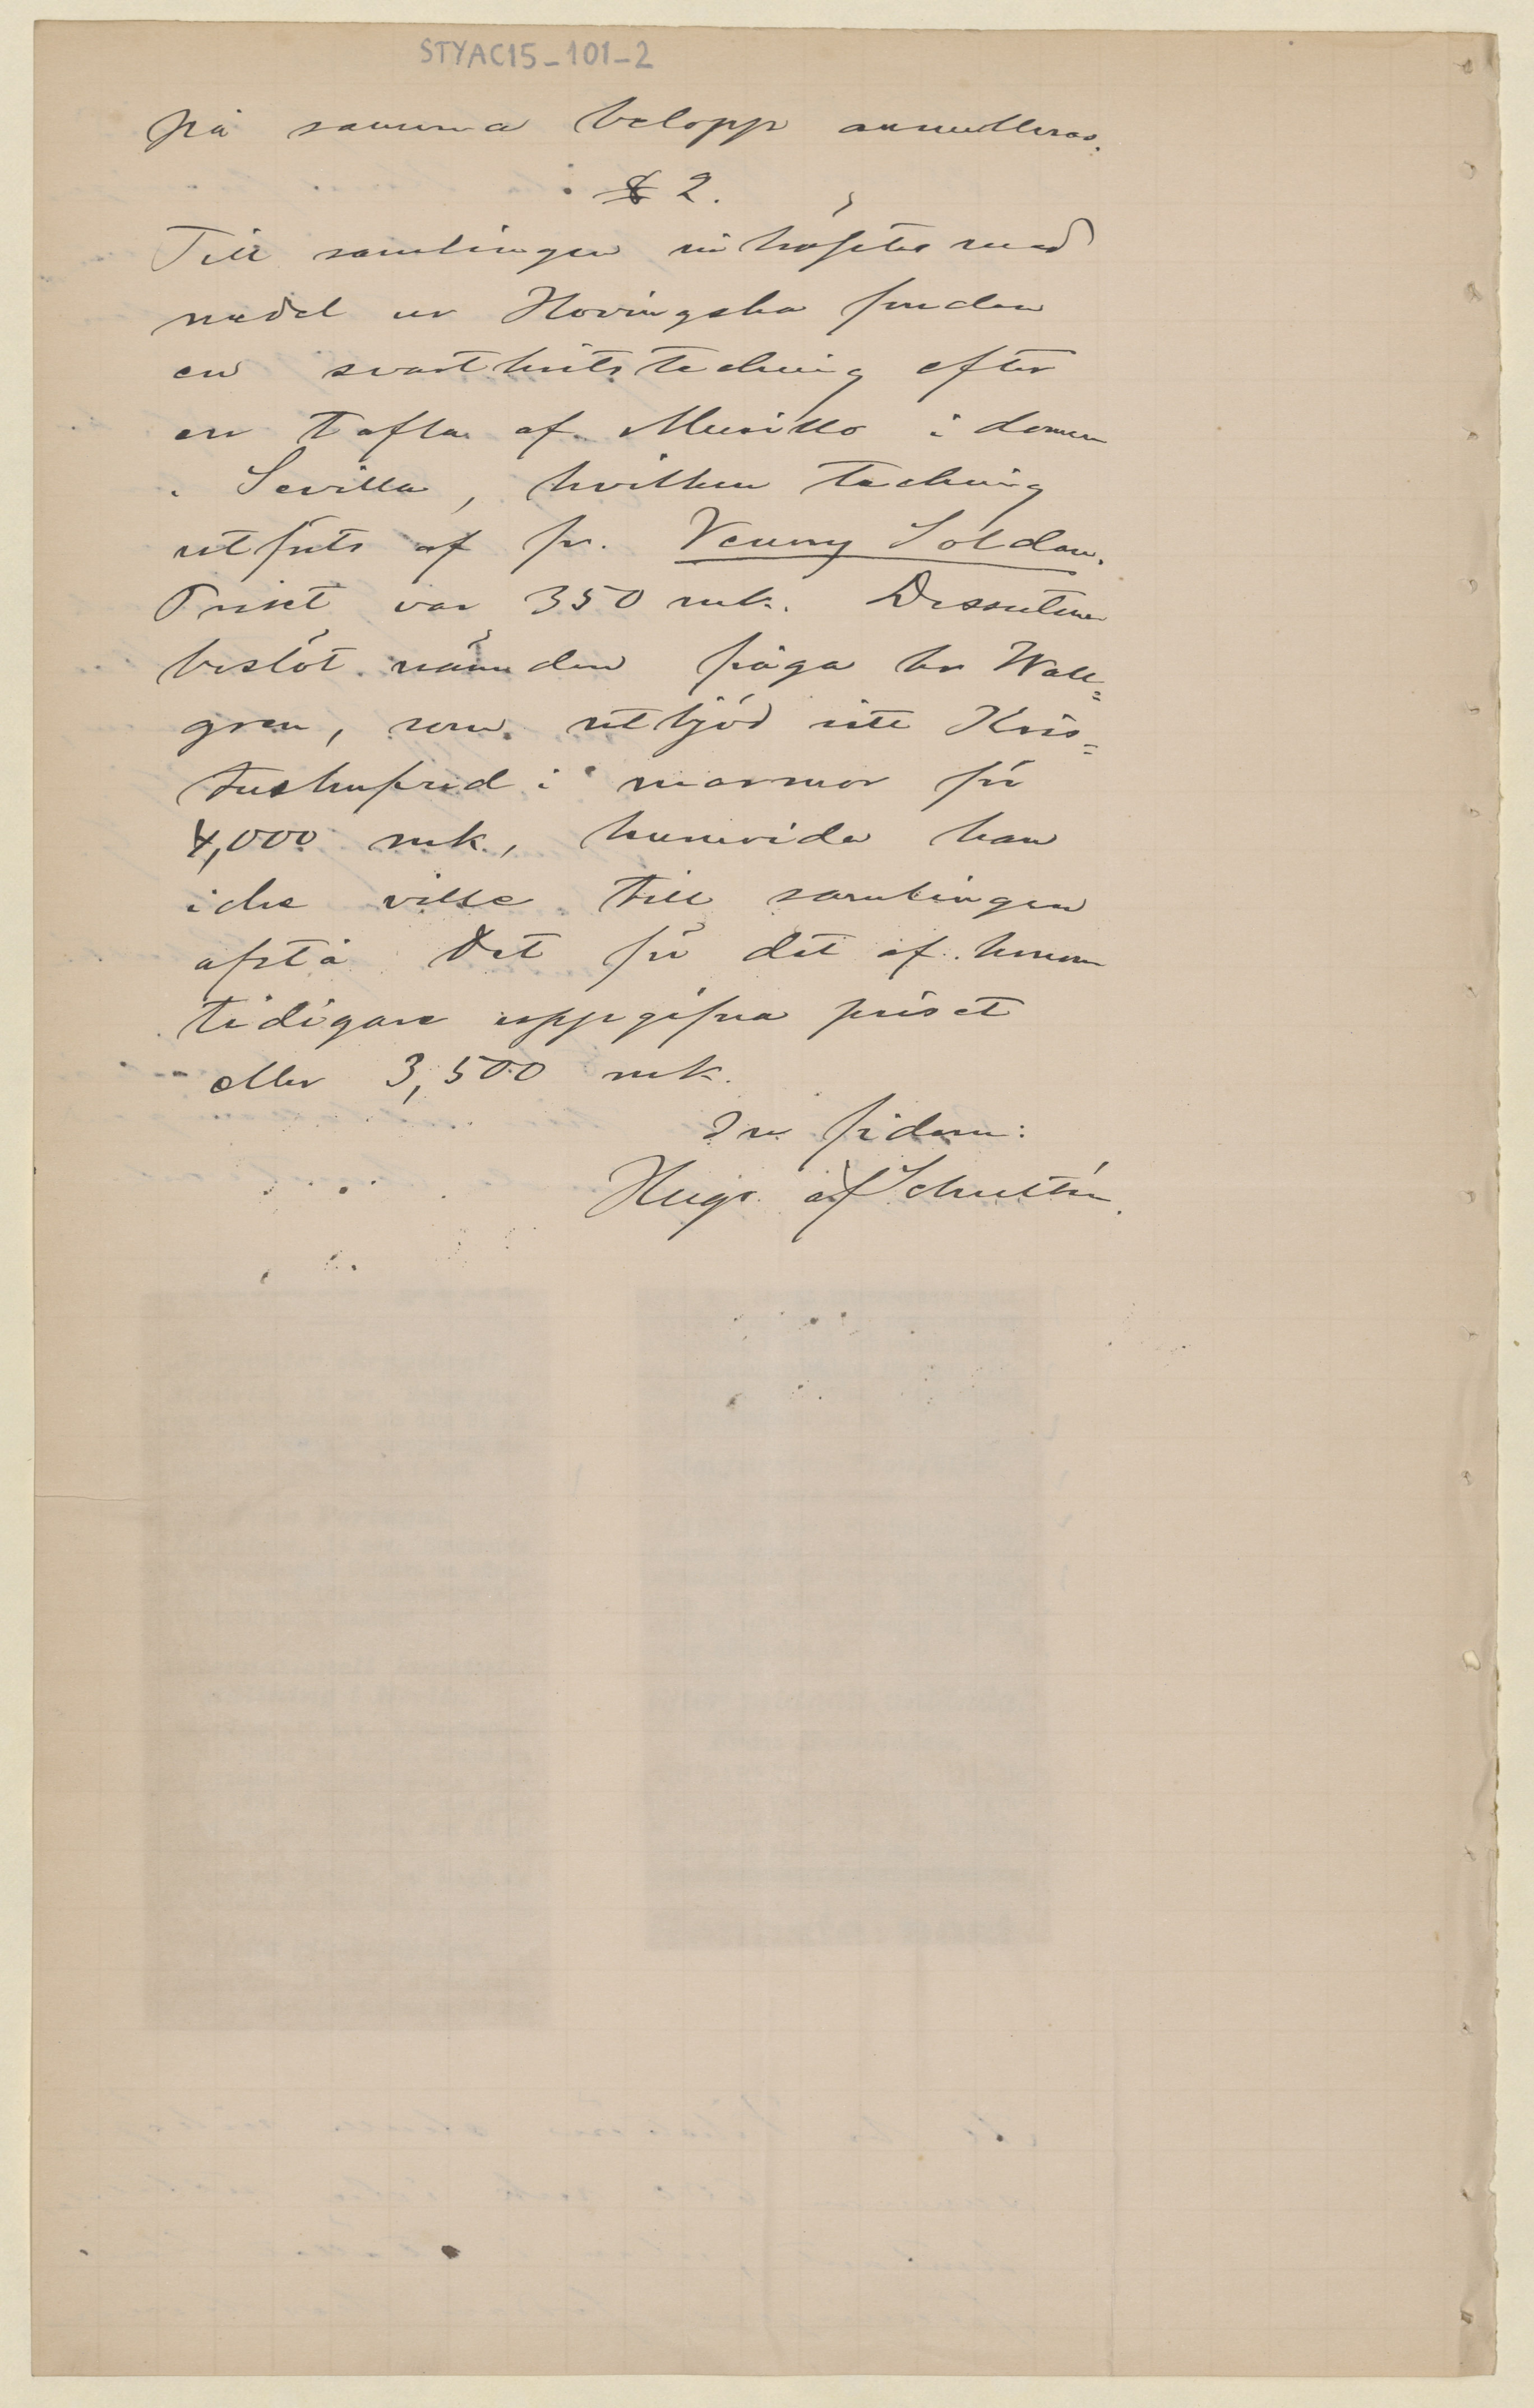 STYAC15_101_2
på samma belopp annulleras.
§ 2.
Till samlingen inköptes med
medel ur Hovingska fonden
en svartkritsteckning efter
en tafla af Murillo i domen
i Sevilla, hvilken teckning
utförts af fr. Venny Soldan.
Priset var 350 mk. Dessutom
beslöt nämnden fråga hr Wall=
gren, som utbjöd sitt Kris=
tushufvud i marmor för
4,000 mk, huruvida han
icke ville till samlingen
afstå det för det af honom
tidigare uppgifna priset
eller 3,500 mk.
In fidem:
Hugo af Schultén.